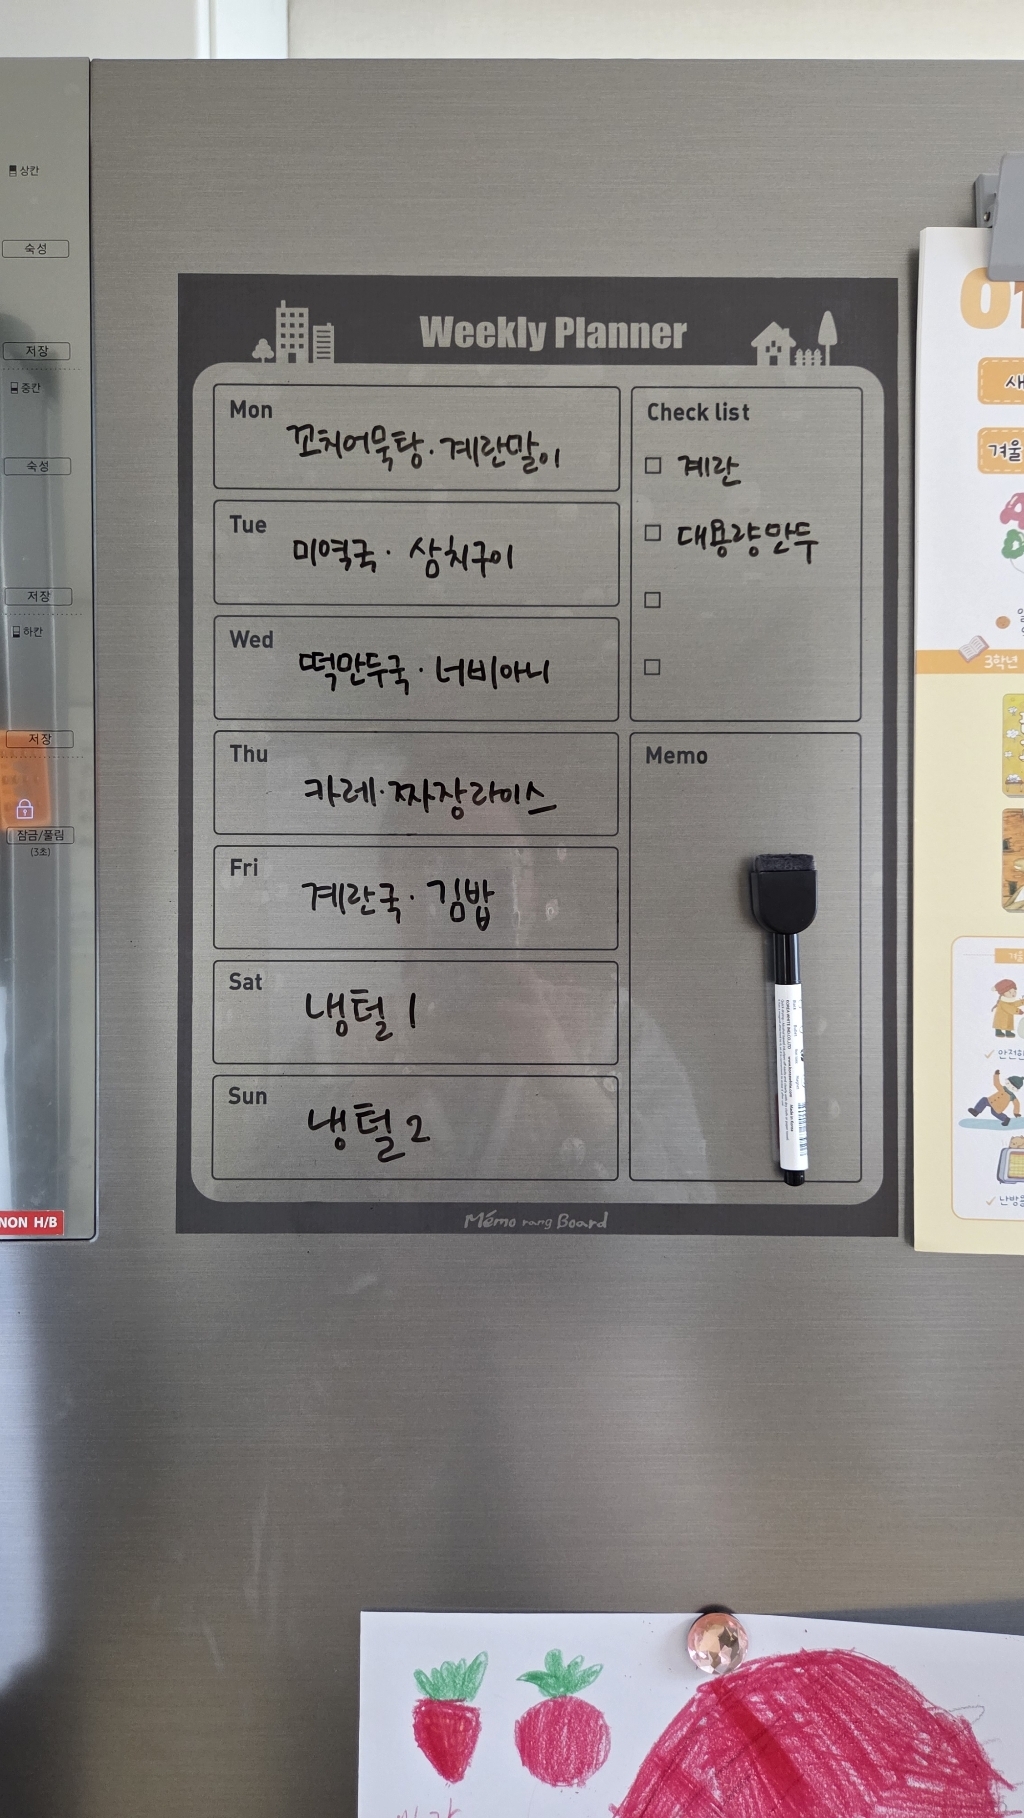 상칸
숙성
저장
중칸
숙성
저장
하칸
저장
잠금/풀림
(3초)
NON H/B
Weekly Planner
Mon
꼬치어묵탕·계란말이
Tue
미역국· 삼치구이
Wed
떡만두국·너비아니
Thu
카레·짜장라이스
Fri
계란국·김밥
Sat
냉털 1
Sun
냉털 2
Check list
계란
대용량만두
Memo
Mémo rang Board
01
새
겨울
3학년
겨울
안전한
난방